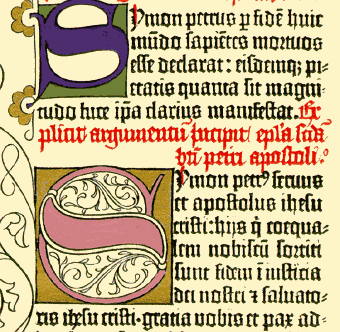 Symon petrus ꝑ fidē huic
mūdo sapiētes mortuos
esse declarat : eisdemqꝫ pi-
etatis quanta sit magni-
tudo luce ip̄a clarius manifestat. Ex
plicit argumentū Incipit epl̄a scd̄a
bt̄i petri apostoli.
Symon petrꝰ seruus
et apostolus ihesu
cristi : hijs q̄ coequa-
lem nobiscū sortiti
sunt fidem ī iusticia
dei nostri ⁊ saluato-
ris ihesu cristi · gratia vobis et pax ad-